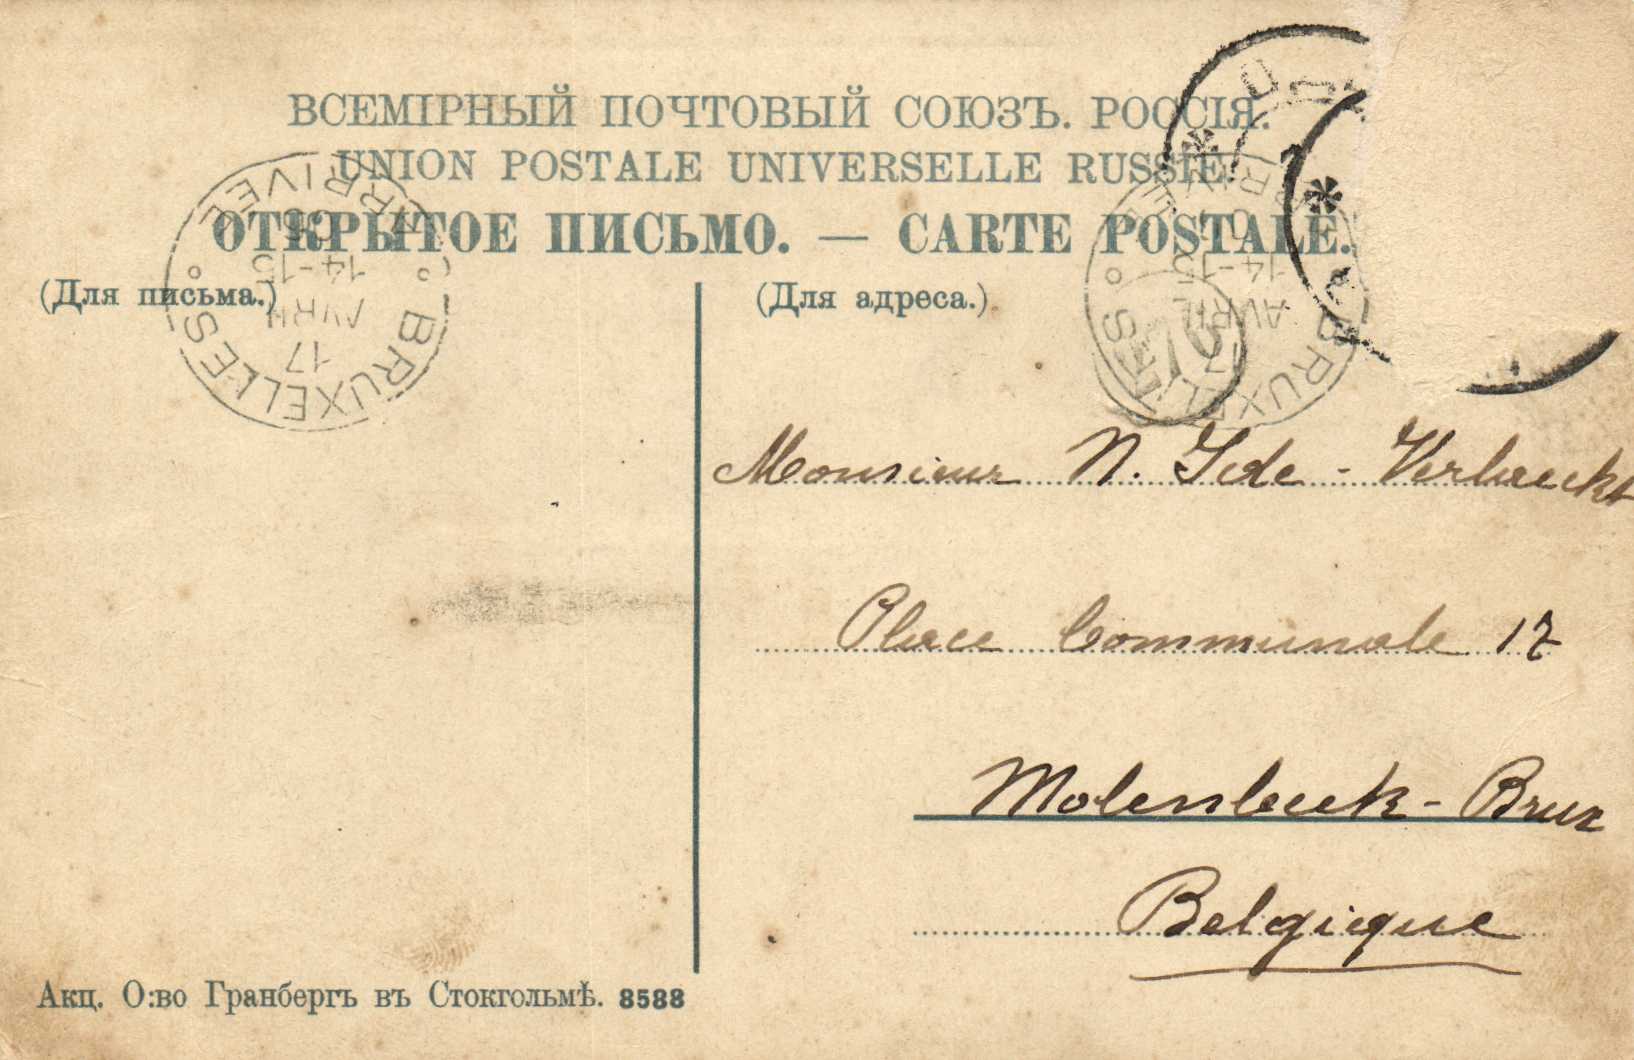 ВСЕМІРНЫЙ ПОЧТОВЫЙ СОЮЗЪ. РОССІЯ.
UNION POSTALE UNIVERSELLE RUSSIE.
ОТКРЫТОЕ ПИСЬМО. — CARTE POSTALE.
(Для письма.)
(Для адреса.)
BRUXELLES
ARRIVEE
17
AVRIL
14-15
BRUXELLES
AVRIL
14-15
70
Monsieur N. Ide - Verbaeckt
Place Communale 17
Molenbeek - Brux
Belgique
Акц. О:во Гранбергъ въ Стокгольмѣ. 8588